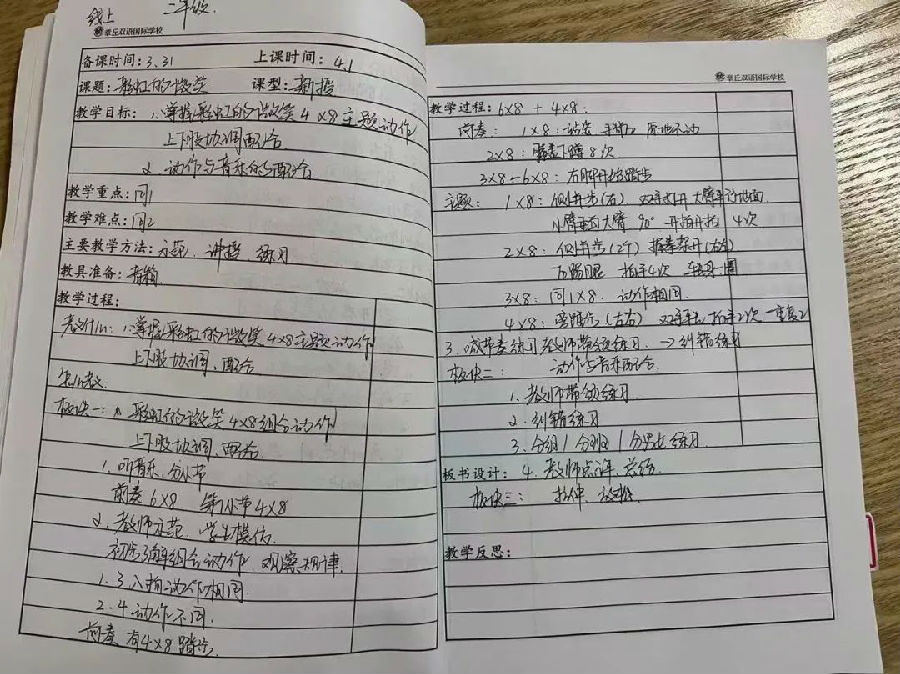 线上 二年级
章丘双语国际学校
备课时间：3.31 上课时间：4.1
课题：彩虹的微笑 课型：新授
教学目标：1.掌握彩虹的微笑4×8主题动作
上下肢协调配合
2.动作与音乐的配合
教学重点：同1
教学难点：同2
主要教学方法：示范、讲授、练习
教具准备：音响
教学过程：
1.掌握彩虹的微笑4×8主题动作
上下肢协调、配合
先学后教
板块一：1.彩虹的微笑4×8组合动作
上下肢协调、配合
1.听音乐、分小节
前奏6×8 第1小节4×8
2.教师示范、学生模仿
初步了解组合动作 观察规律
1.3八拍动作相同
2.4动作不同
前奏 有4×8踏步
章丘双语国际学校
教学过程：6×8 + 4×8
前奏：1×8：站立 原地不动
2×8：膝盖下蹲8次
3×8-6×8：右脚开始踏步
主题：1×8：侧并步(右) 大臂平行地面
小臂垂直大臂 90° 4次
2×8：侧并步(2个) (左右)
拍手4次
3×8：同1×8 动作相同
4×8： (左右) 拍手2次
3. 练习 教师带领练习 → 纠错练习
板块二： 动作与音乐配合
1.教师带领练习
2.纠错练习
3.分组/分男女练习
板书设计：4.教师点评、总结
板块三： 拉伸、放松
教学反思：